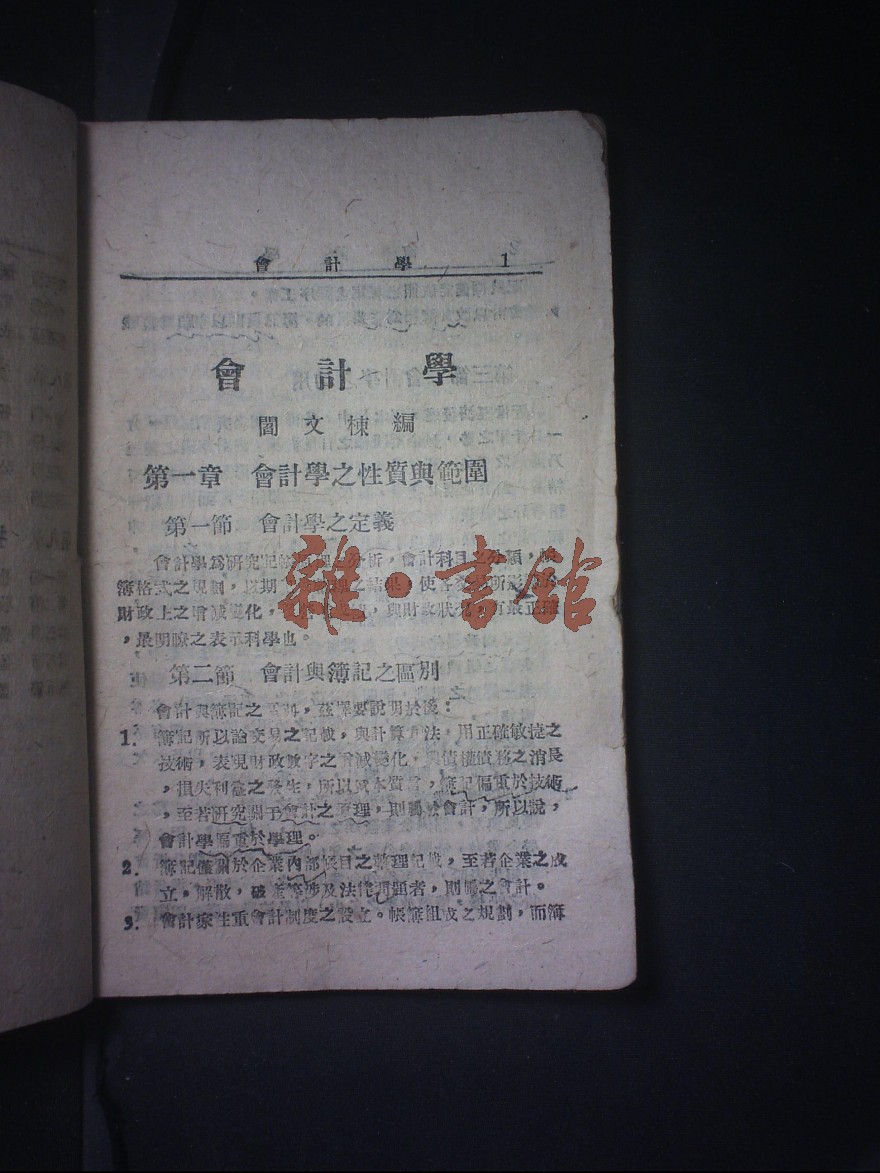 會計學 1
會計學
閻文棟編
第一章 會計學之性質與範圍
第一節 會計學之定義
會計學爲研究記帳 分析,會計科目之分類,
簿格式之規劃,以期 之結果,使各 所
財政上之增減變化, 與財政狀況,有最正確
,最明瞭之表示科學也。
第二節 會計與簿記之區別
會計與簿記之區別,茲擇要說明於後:
1. 簿記所以論交易之記載,與計算方法,用正確敏捷之
技術,表現財政數字之增減變化,與債權債務之消長
,損失利益之發生,所以就本質言,簿記偏重於技術
,至若研究關于會計之至理,則屬於會計,所以說,
會計學偏重於學理。
2. 簿記僅關於企業內部帳目之整理記載,至若企業之成
立,解散,破產等涉及法律問題者,則屬之會計。
3. 會計家注重會計制度之設立。帳簿組成之規劃,而簿
雜·書館